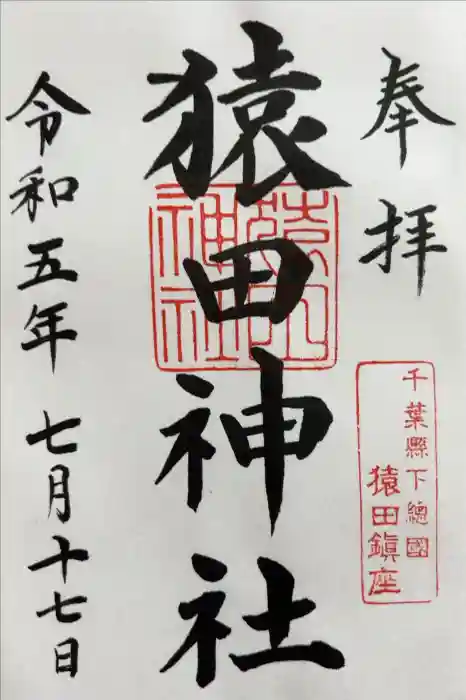 奉拝
千葉縣下總國
猿田鎮座
猿田神社
猿田神社
令和五年七月十七日